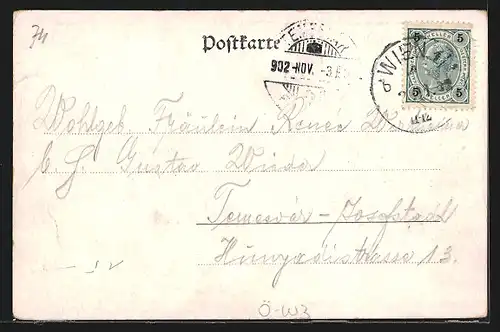 74
Postkarte
902-NOV.-3
WIEN
5 HELLER 5
5 5
Wohlgeb. Fräulein Renée
Gustav Winder
Temesvár-Josefstadt
Hunyadistrasse 13.
Ö-W3